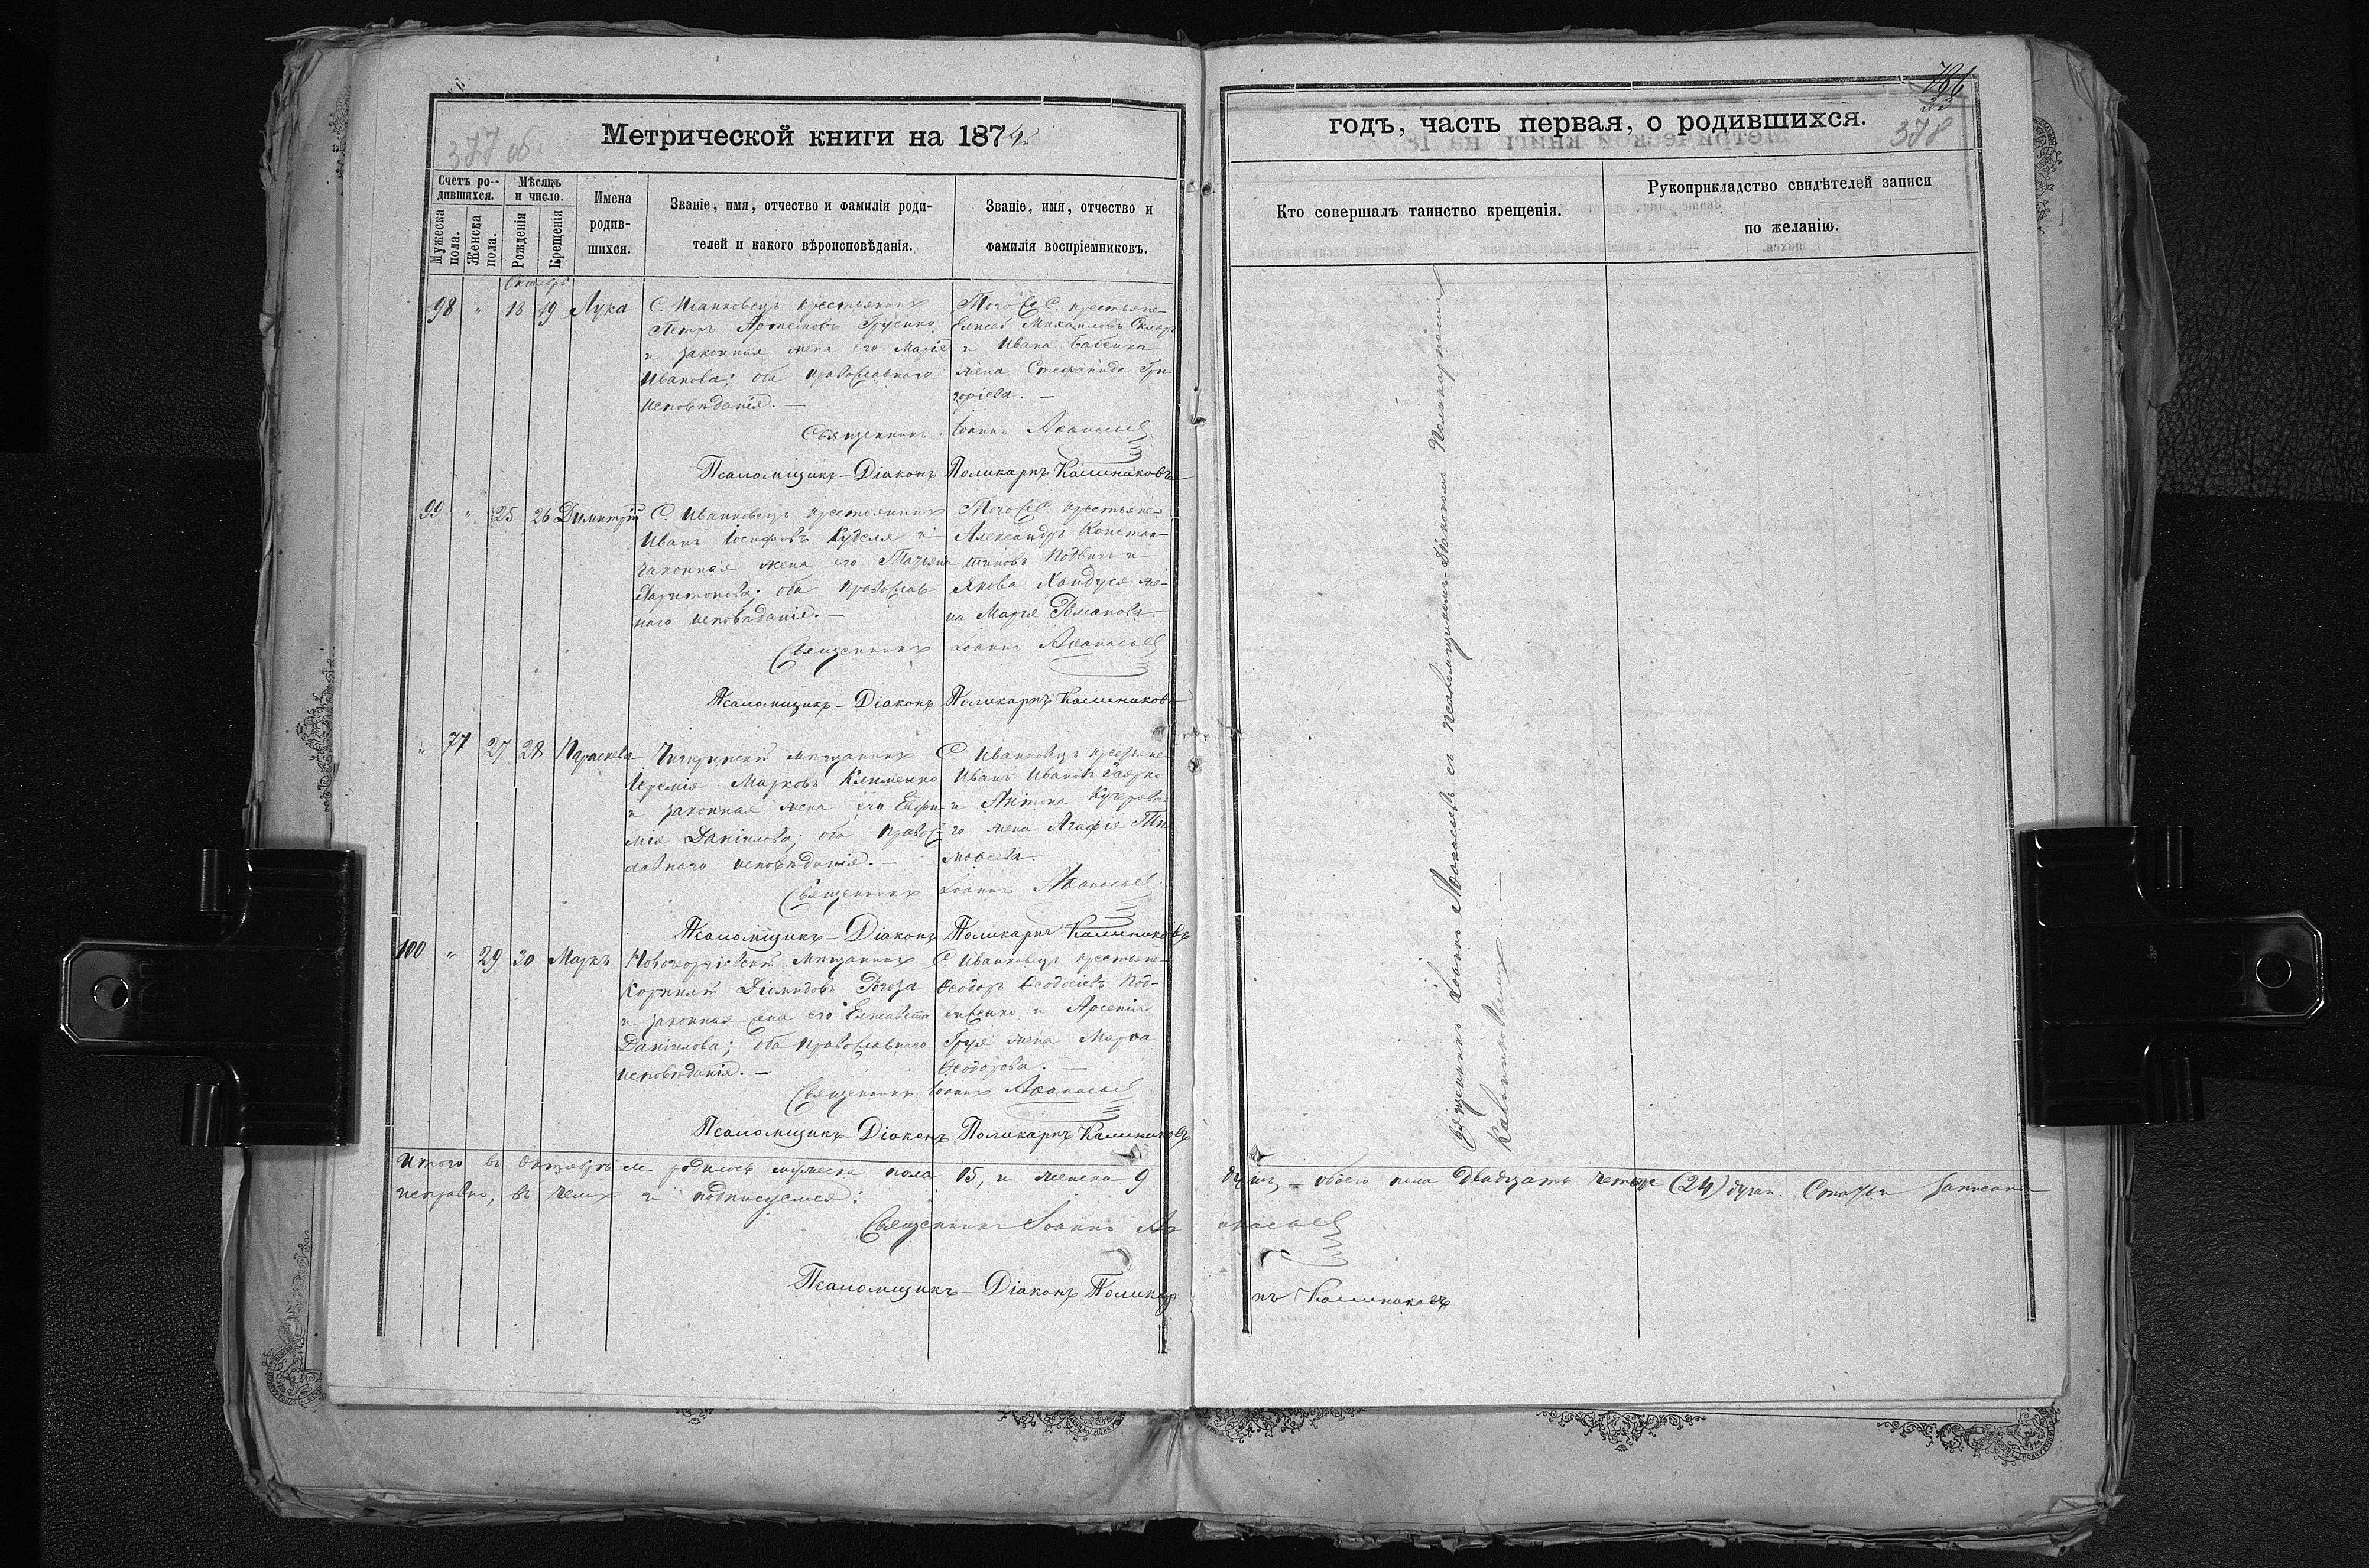 377 об
Метрической книги на 1874
Счетъ ро-
дившихся.
Мужеска
пола.
Женска
пола.
Мѣсяцъ
и число.
Рожденія
Крещенія
Имена
родив-
шихся.
Званіе, имя, отчество и фамилія роди-
телей и какого вѣроисповѣданія.
Званіе, имя, отчество и
фамилія воспріемниковъ.
Октябрь
98 " 18 19 Лука
С. Иванковецъ крестьянинъ
Петръ Артемовъ
и законная жена его Марія
Иванова; оба православнаго
исповѣданія. —
Того же С. крестьяне
Елисей Михаиловъ Скляръ
и Ивана Бабенка
жена Стефанида Гри-
горіева. —
Священникъ Іоаннъ Аѳанасьевъ
Псаломщикъ - Діаконъ Поликарпъ Калиниковъ
99 " 25 26 Димитрій
С. Иванковецъ крестьянинъ
Иванъ Іосифовъ Куделя и
законная жена его Татьяна
Харитонова; оба православ-
наго исповѣданія. —
Того же С. крестьяне
Александръ Констан-
тиновъ и
Якова же-
на Марія Романова
Священникъ Іоаннъ Аѳанасьевъ
Псаломщикъ - Діаконъ Поликарпъ Калиниковъ
" 77 27 28 Параскева
Чигиринскій мѣщанинъ
Іеремія Марковъ Клименко
и законная жена его Евфи-
мія Даніилова; оба правос-
лавнаго исповѣданія. —
С. Иванковецъ крестьяне
Иванъ Ивановъ
и Антона Кучерява-
го жена Агафія Ти-
моѳеева.
Священникъ Іоаннъ Аѳанасьевъ
Псаломщикъ - Діаконъ Поликарпъ Калиниковъ
100 " 29 30 Маркъ
Новогеоргіевскій мѣщанинъ
Корнилій Діомидовъ Рогоза
и законная жена его Елисавета
Даніилова; оба православнаго
исповѣданія. —
С. Иванковецъ крестьяне
Ѳеодоръ Ѳеодосіевъ
и Арсенія
жена Марѳа
Ѳеодорова. —
Священникъ Іоаннъ Аѳанасьевъ
Псаломщикъ - Діаконъ Поликарпъ Калиниковъ
Итого въ Октябрѣ м. родилось мужеска пола 15, и женска 9
исправно, въ чемъ и подписуемся:
Священникъ Іоаннъ Аѳ
Псаломщикъ - Діаконъ Поликар
годъ, часть первая, о родившихся.
378
Кто совершалъ таинство крещенія.
Рукоприкладство свидѣтелей записи
по желанію.
Священникъ Іоаннъ Аѳанасьевъ съ псаломщикомъ - Діакономъ Поликарпомъ
Калиниковымъ —
душъ, — обоего пола двадцать четыре (24) души. Статьи записаны
анасьевъ
пъ Калиниковъ